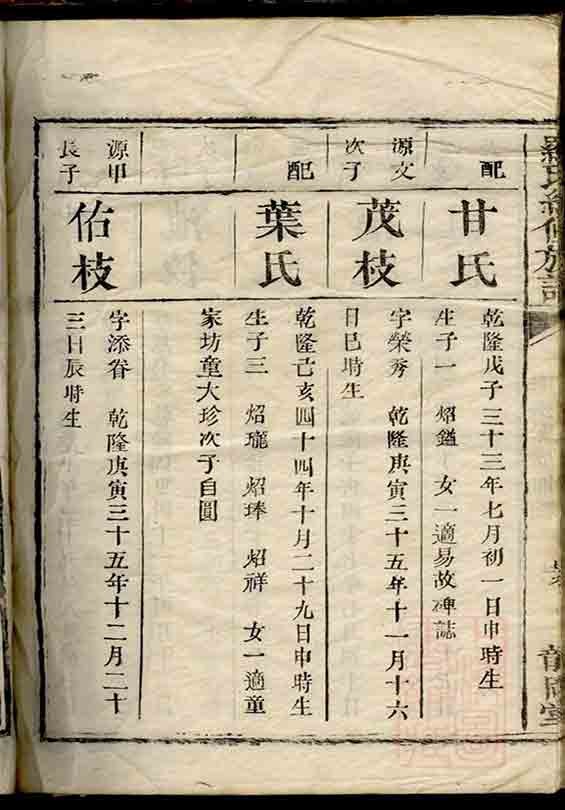 配
甘氏
乾隆戊子三十三年七月初一日申時生
生子一 炤鎰 女一適易故碑誌
源文
次子
茂枝
字榮秀 乾隆庚寅三十五年十一月十六
日巳時生
配
葉氏
乾隆己亥四十四年十月二十九日申時生
生子三 炤瓏 炤琫 炤祥 女一適童
家坊童大珍次子自圓
源甲
長子
佑枝
字添眷 乾隆庚寅三十五年十二月二十
三日辰時生